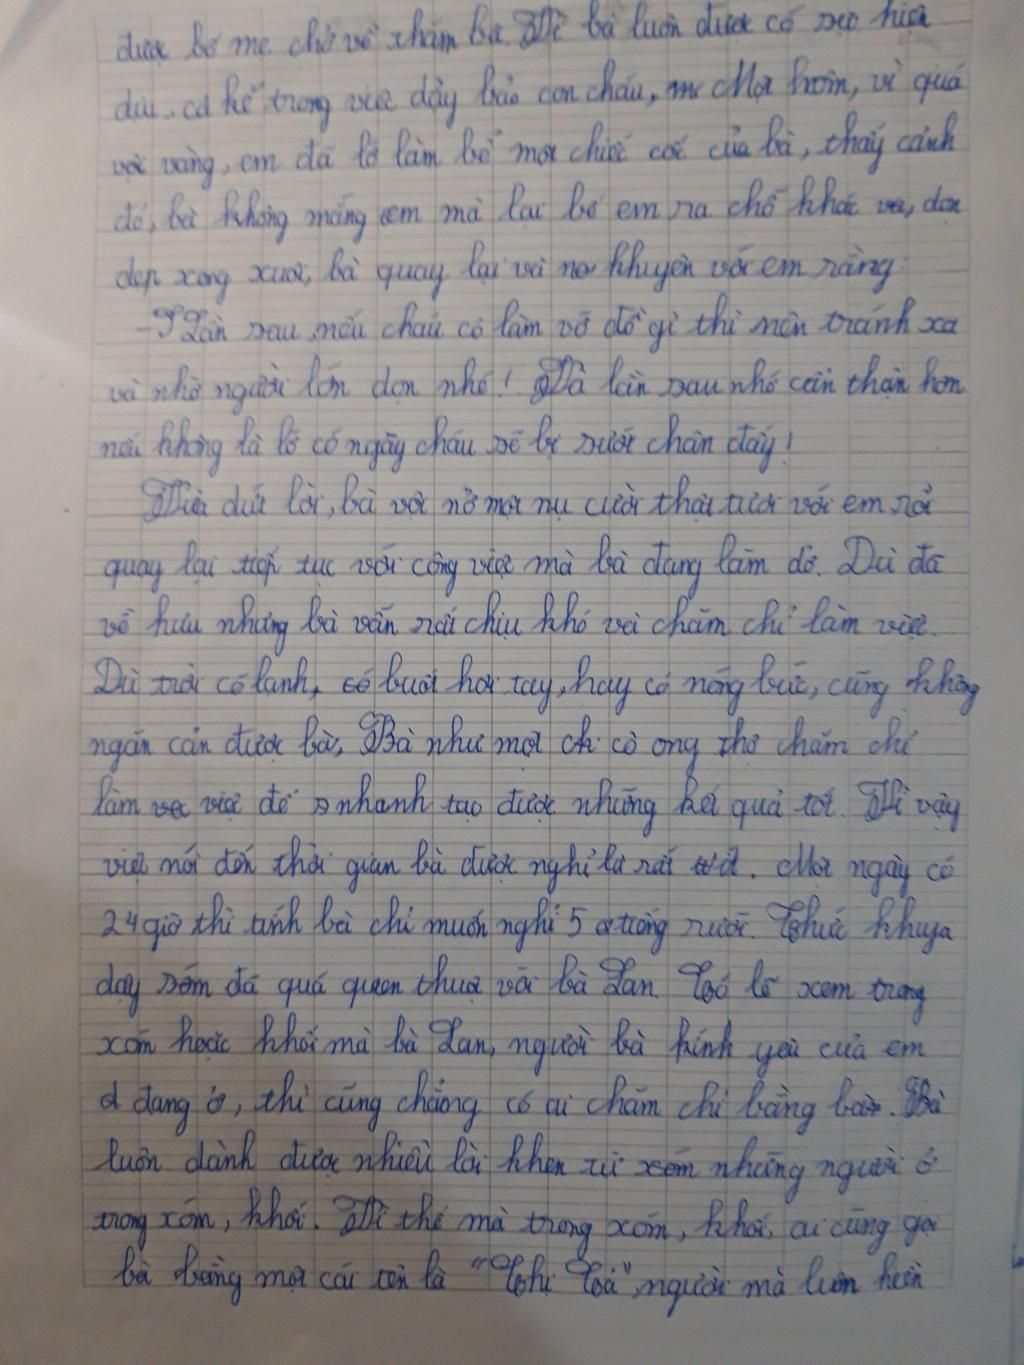 được bố mẹ chở về thăm bà. Vì bà luôn được có sự hiền
dịu, cả kể trong việc dậy bảo con cháu, Một hôm, vì quá
vội vàng, em đã lỡ làm bể một chiếc cốc của bà, thấy cảnh
đó, bà không mắng em mà lại bế em ra chỗ khác và, dọn
dẹp xong xuôi, bà quay lại và khuyên với em rằng:
- Lần sau, nếu cháu có làm vỡ đồ gì thì nên tránh xa
và nhờ người lớn dọn nhé! Và lần sau nhớ cẩn thận hơn
nếu không là lỡ có ngày cháu sẽ bị xướt chân đấy!
Vừa dứt lời, bà vội nở một nụ cười thật tươi với em rồi
quay lại tiếp tục với công việc mà bà đang làm dở. Dù đã
về hưu nhưng bà vẫn rất chịu khó và chăm chỉ làm việc.
Dù trời có lạnh, có buốt hơi tay, hay có nóng bức, cũng không
ngăn cản được bà, Bà như một cô ong thợ chăm chỉ
làm việc để nhanh tạo được những kết quả tốt. Vì vậy
việc nói đến thời gian bà được nghỉ là rất ít. Một ngày có
24 giờ thì tính bà chỉ muốn nghỉ 5 tiếng rưỡi. Thức khuya
dạy sớm đã quá quen thuộc với bà Lan. Có lẽ xem trong
xóm hoặc khối mà bà Lan, người bà kính yêu của em
đang ở, thì cũng chẳng có ai chăm chỉ bằng bà. Bà
luôn dành được nhiều lời khen từ xóm những người ở
trong xóm, khối. Vì thế mà trong xóm, khối, ai cũng gọi
bà bằng một cái tên là "Chị Cả", người mà luôn hiền